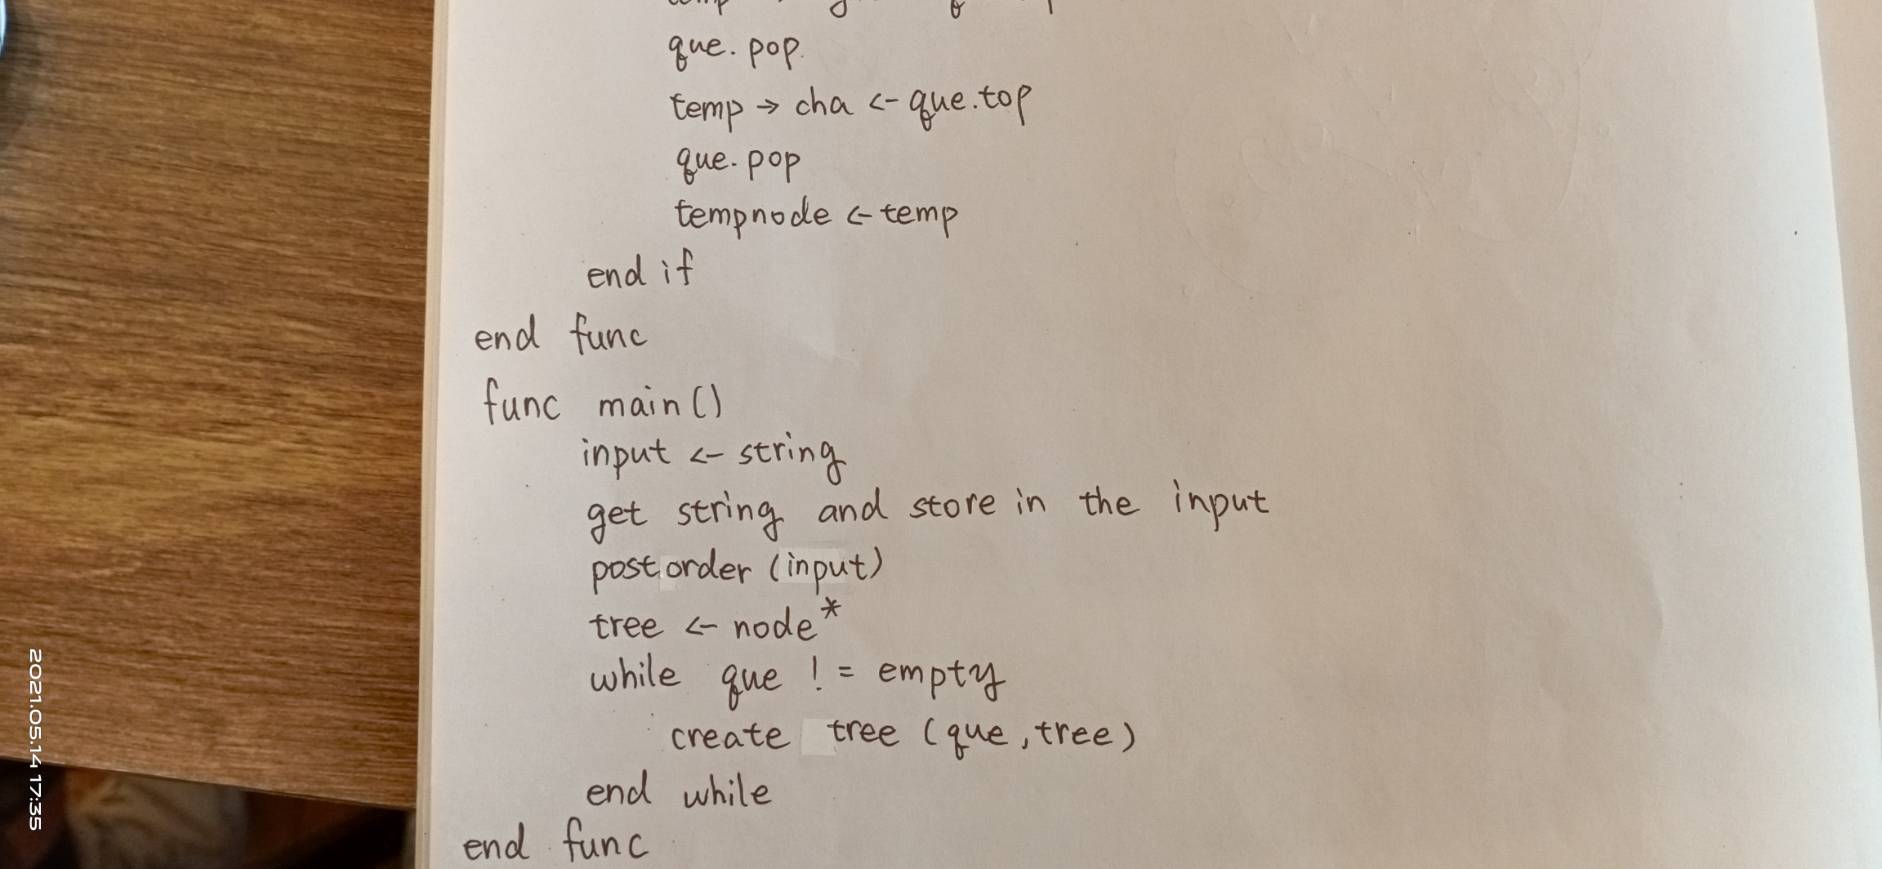 que. pop.
temp → cha <- que.top
que. pop
tempnode <- temp
end if
end func
func main()
input <- string
get string and store in the input
postorder (input)
tree <- node*
while que != empty
create tree (que, tree)
end while
end func
2021.05.14 17:35